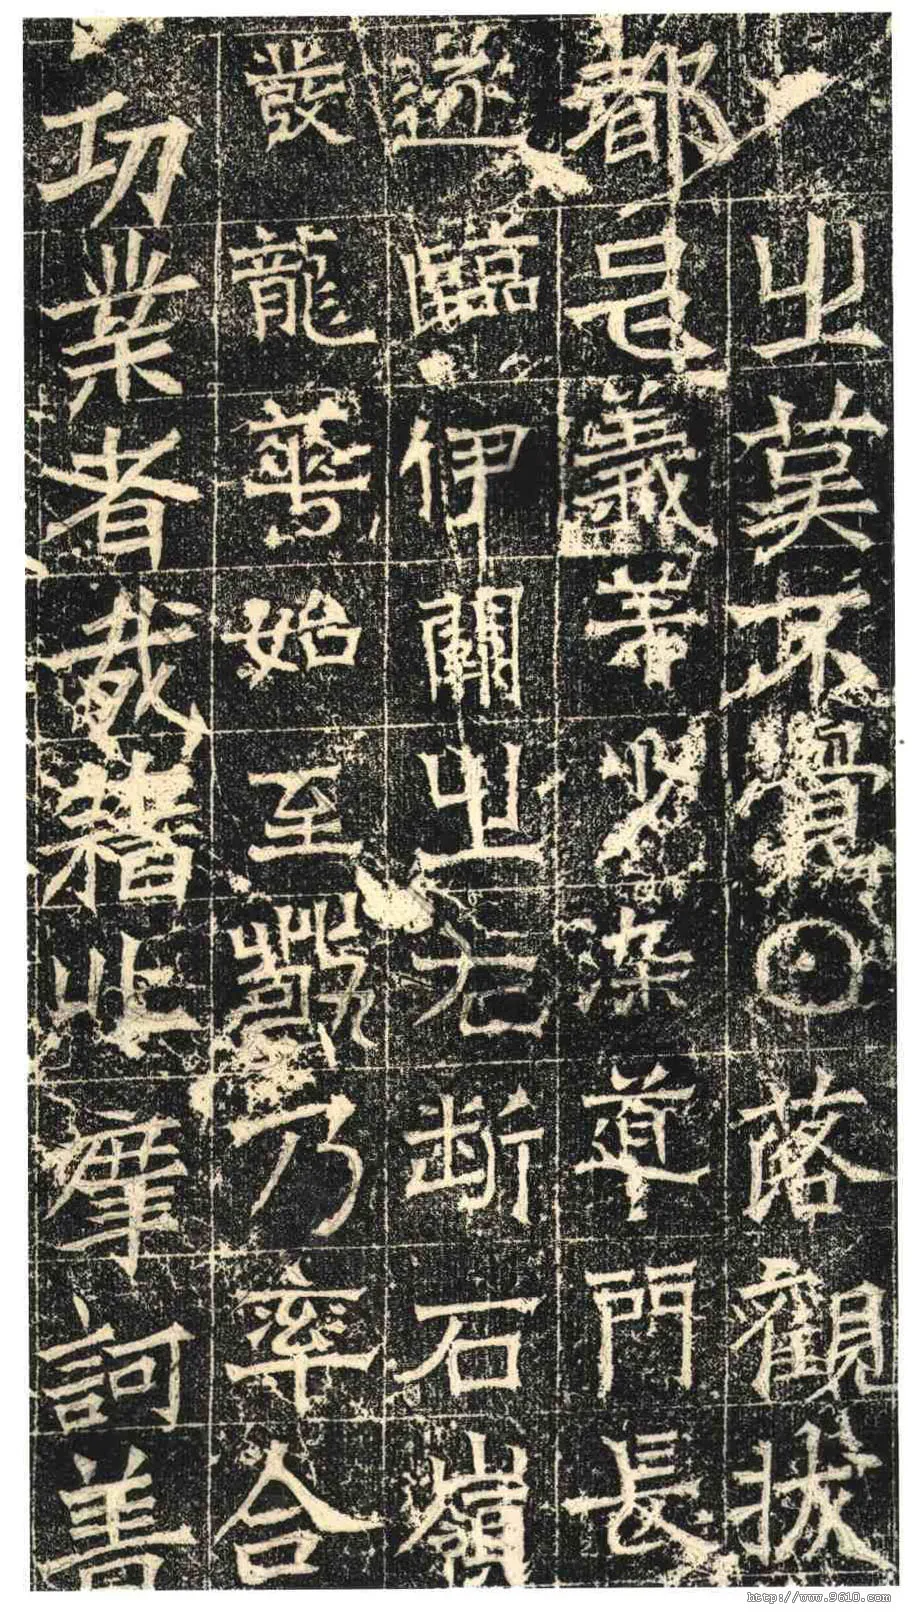 之莫不覺⊙落觀拔
都邑義等染道門長
遂臨伊闕之右斷石嶺
發龍華始至歡乃率合
功業者哉藉此摩訶善
http://www.9610.com